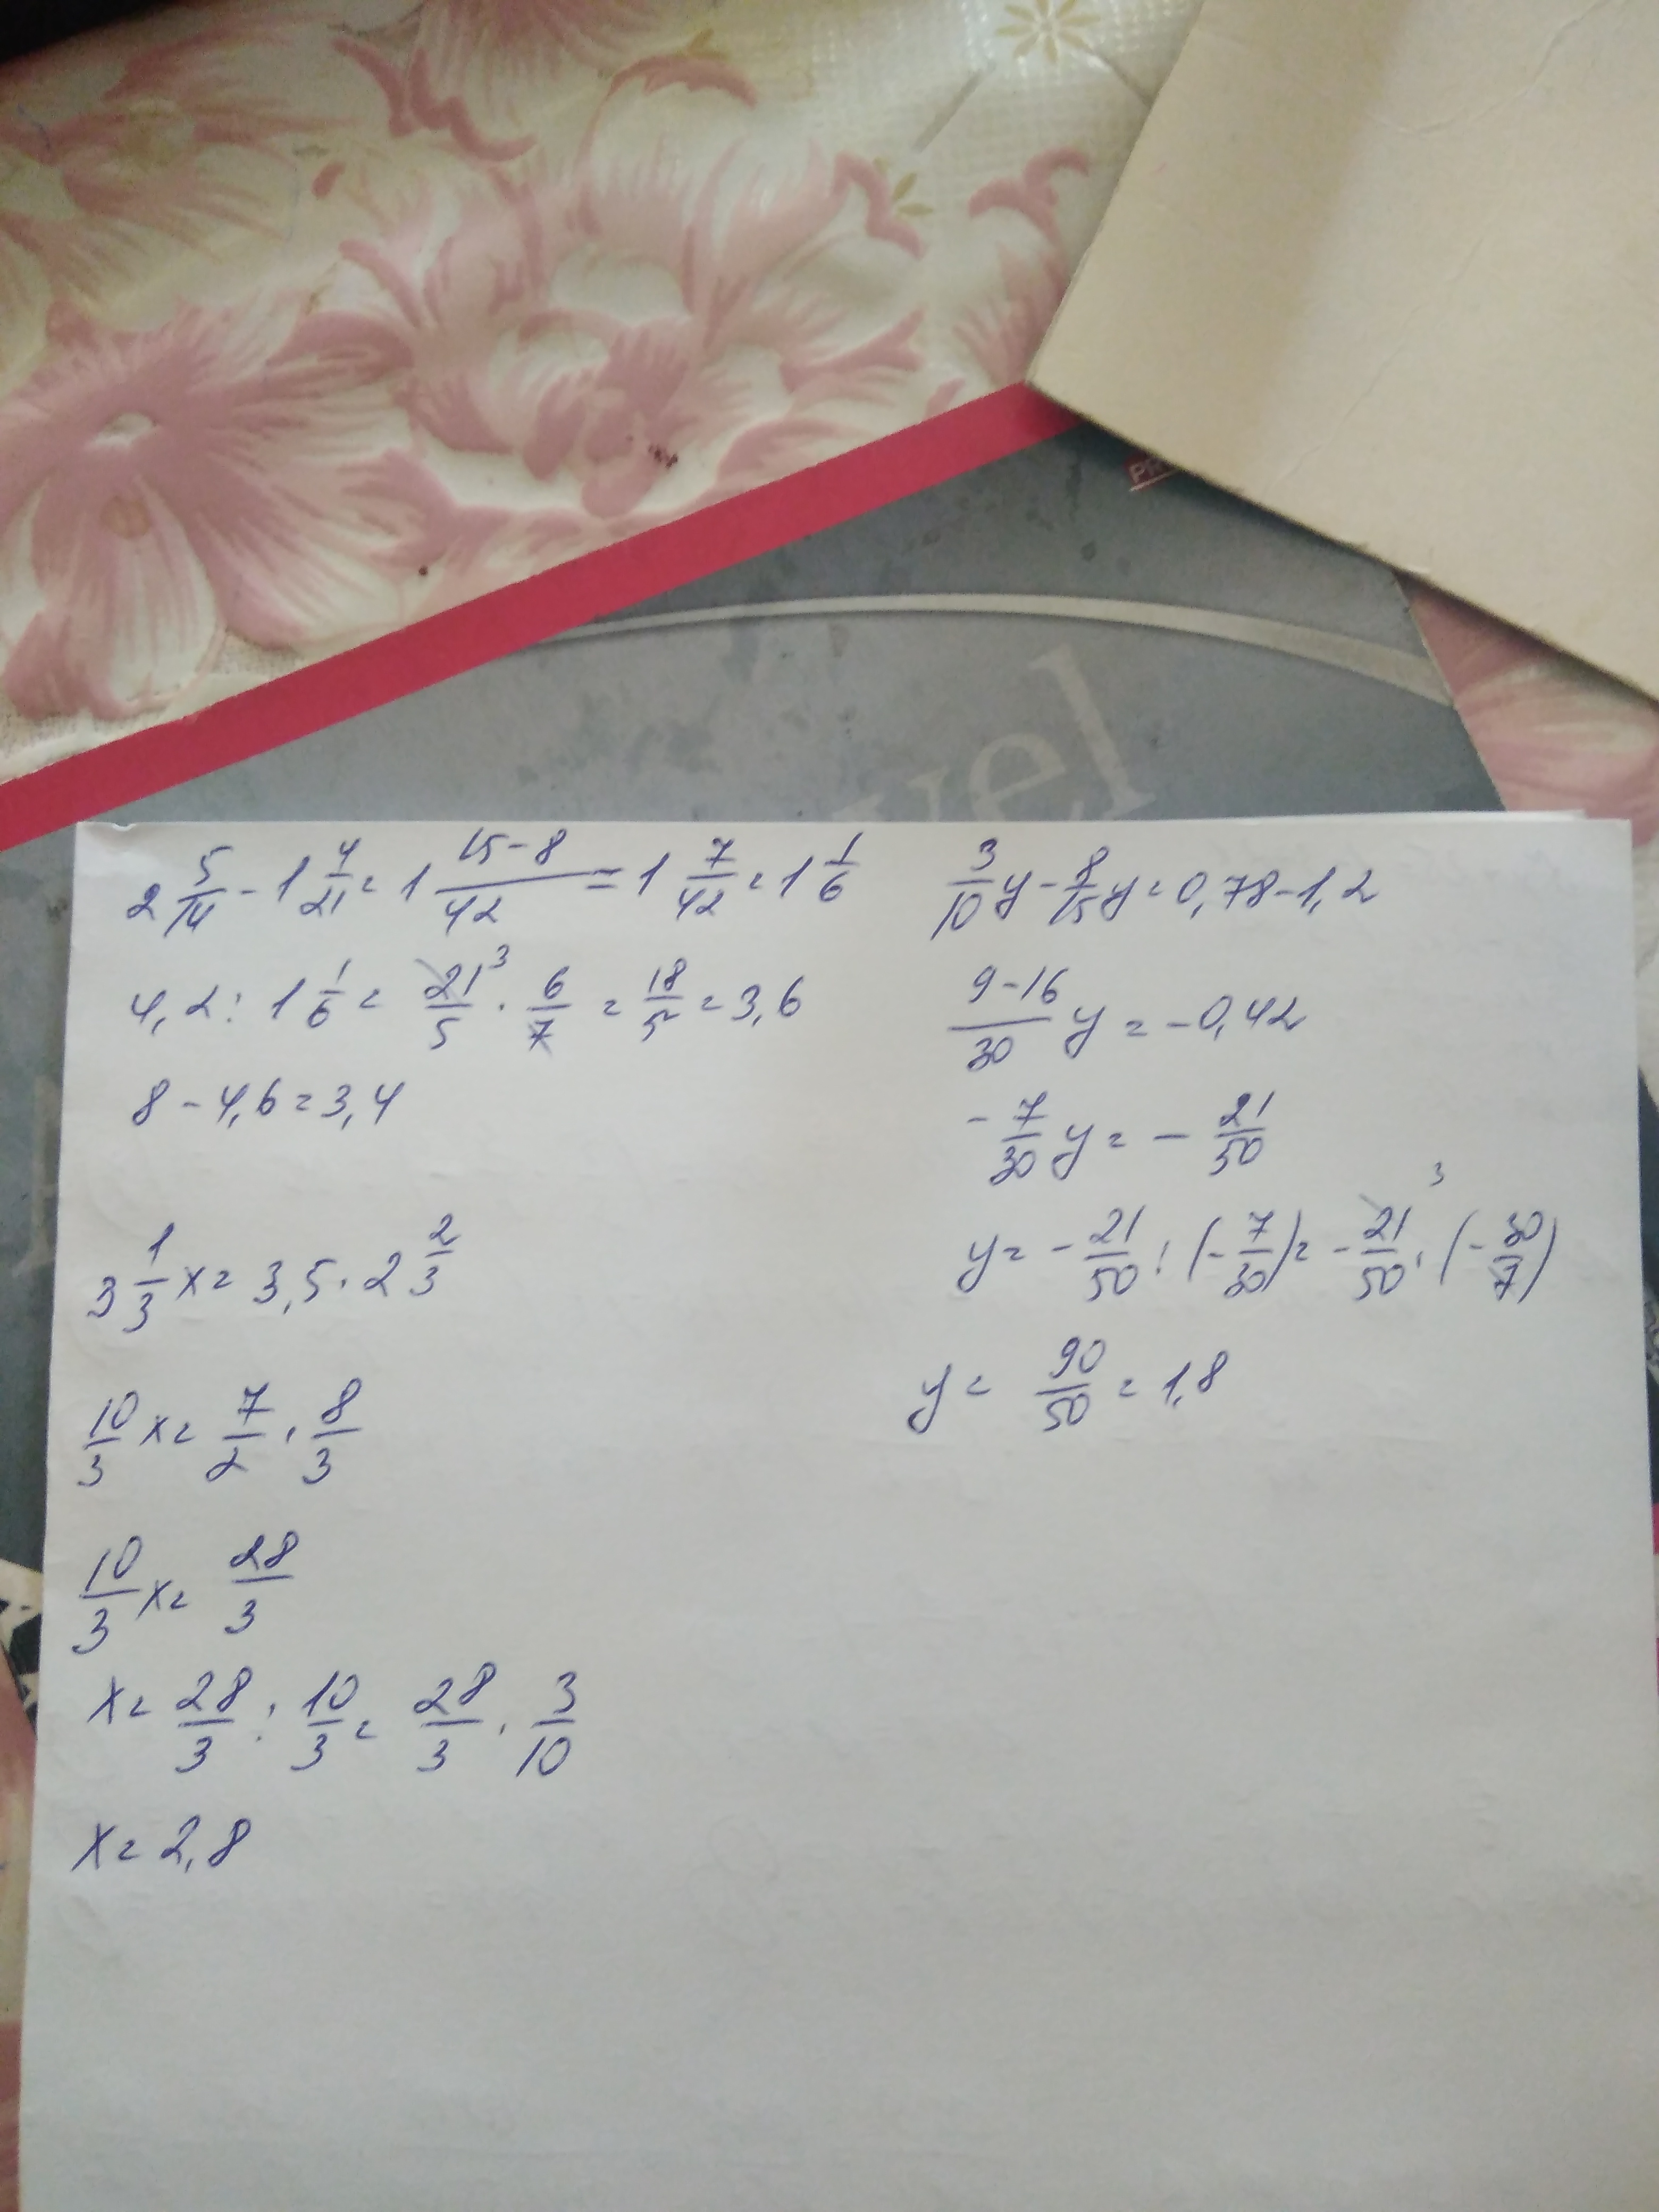 2 5/14 - 1 4/21 = 1 (15-8)/42 = 1 7/42 = 1 1/6
4,2 : 1 1/6 = 21/5 ³ · 6/7 = 18/5 = 3,6
8 - 4,6 = 3,4
3 1/3 x = 3,5 · 2 2/3
10/3 x = 7/2 · 8/3
10/3 x = 28/3
x = 28/3 : 10/3 = 28/3 · 3/10
x = 2,8
3/10 y - 8/15 y = 0,78 - 1,2
(9-16)/30 y = -0,42
- 7/30 y = - 21/50
y = - 21/50 : (- 7/30) = - 21/50 ³ · (- 30/7)
y = 90/50 = 1,8
vel